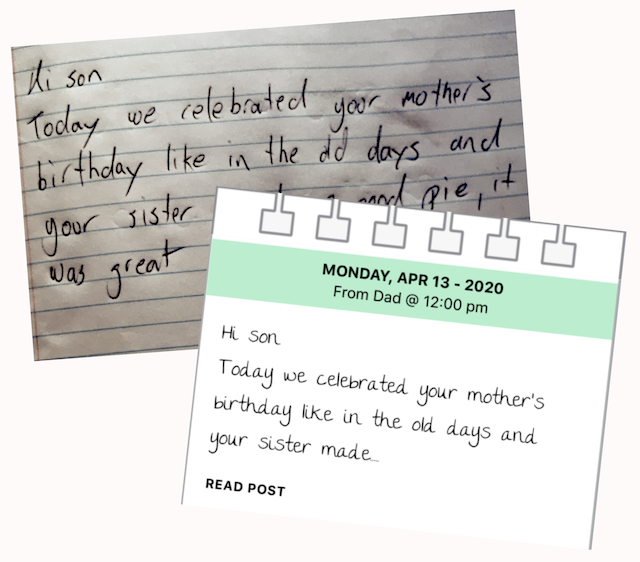 Hi son
Today we celebrated your mother's
birthday like in the old days and
your sister pie, it
was great
MONDAY, APR 13 - 2020
From Dad @ 12:00 pm
Hi son
Today we celebrated your mother's
birthday like in the old days and
your sister made...
READ POST